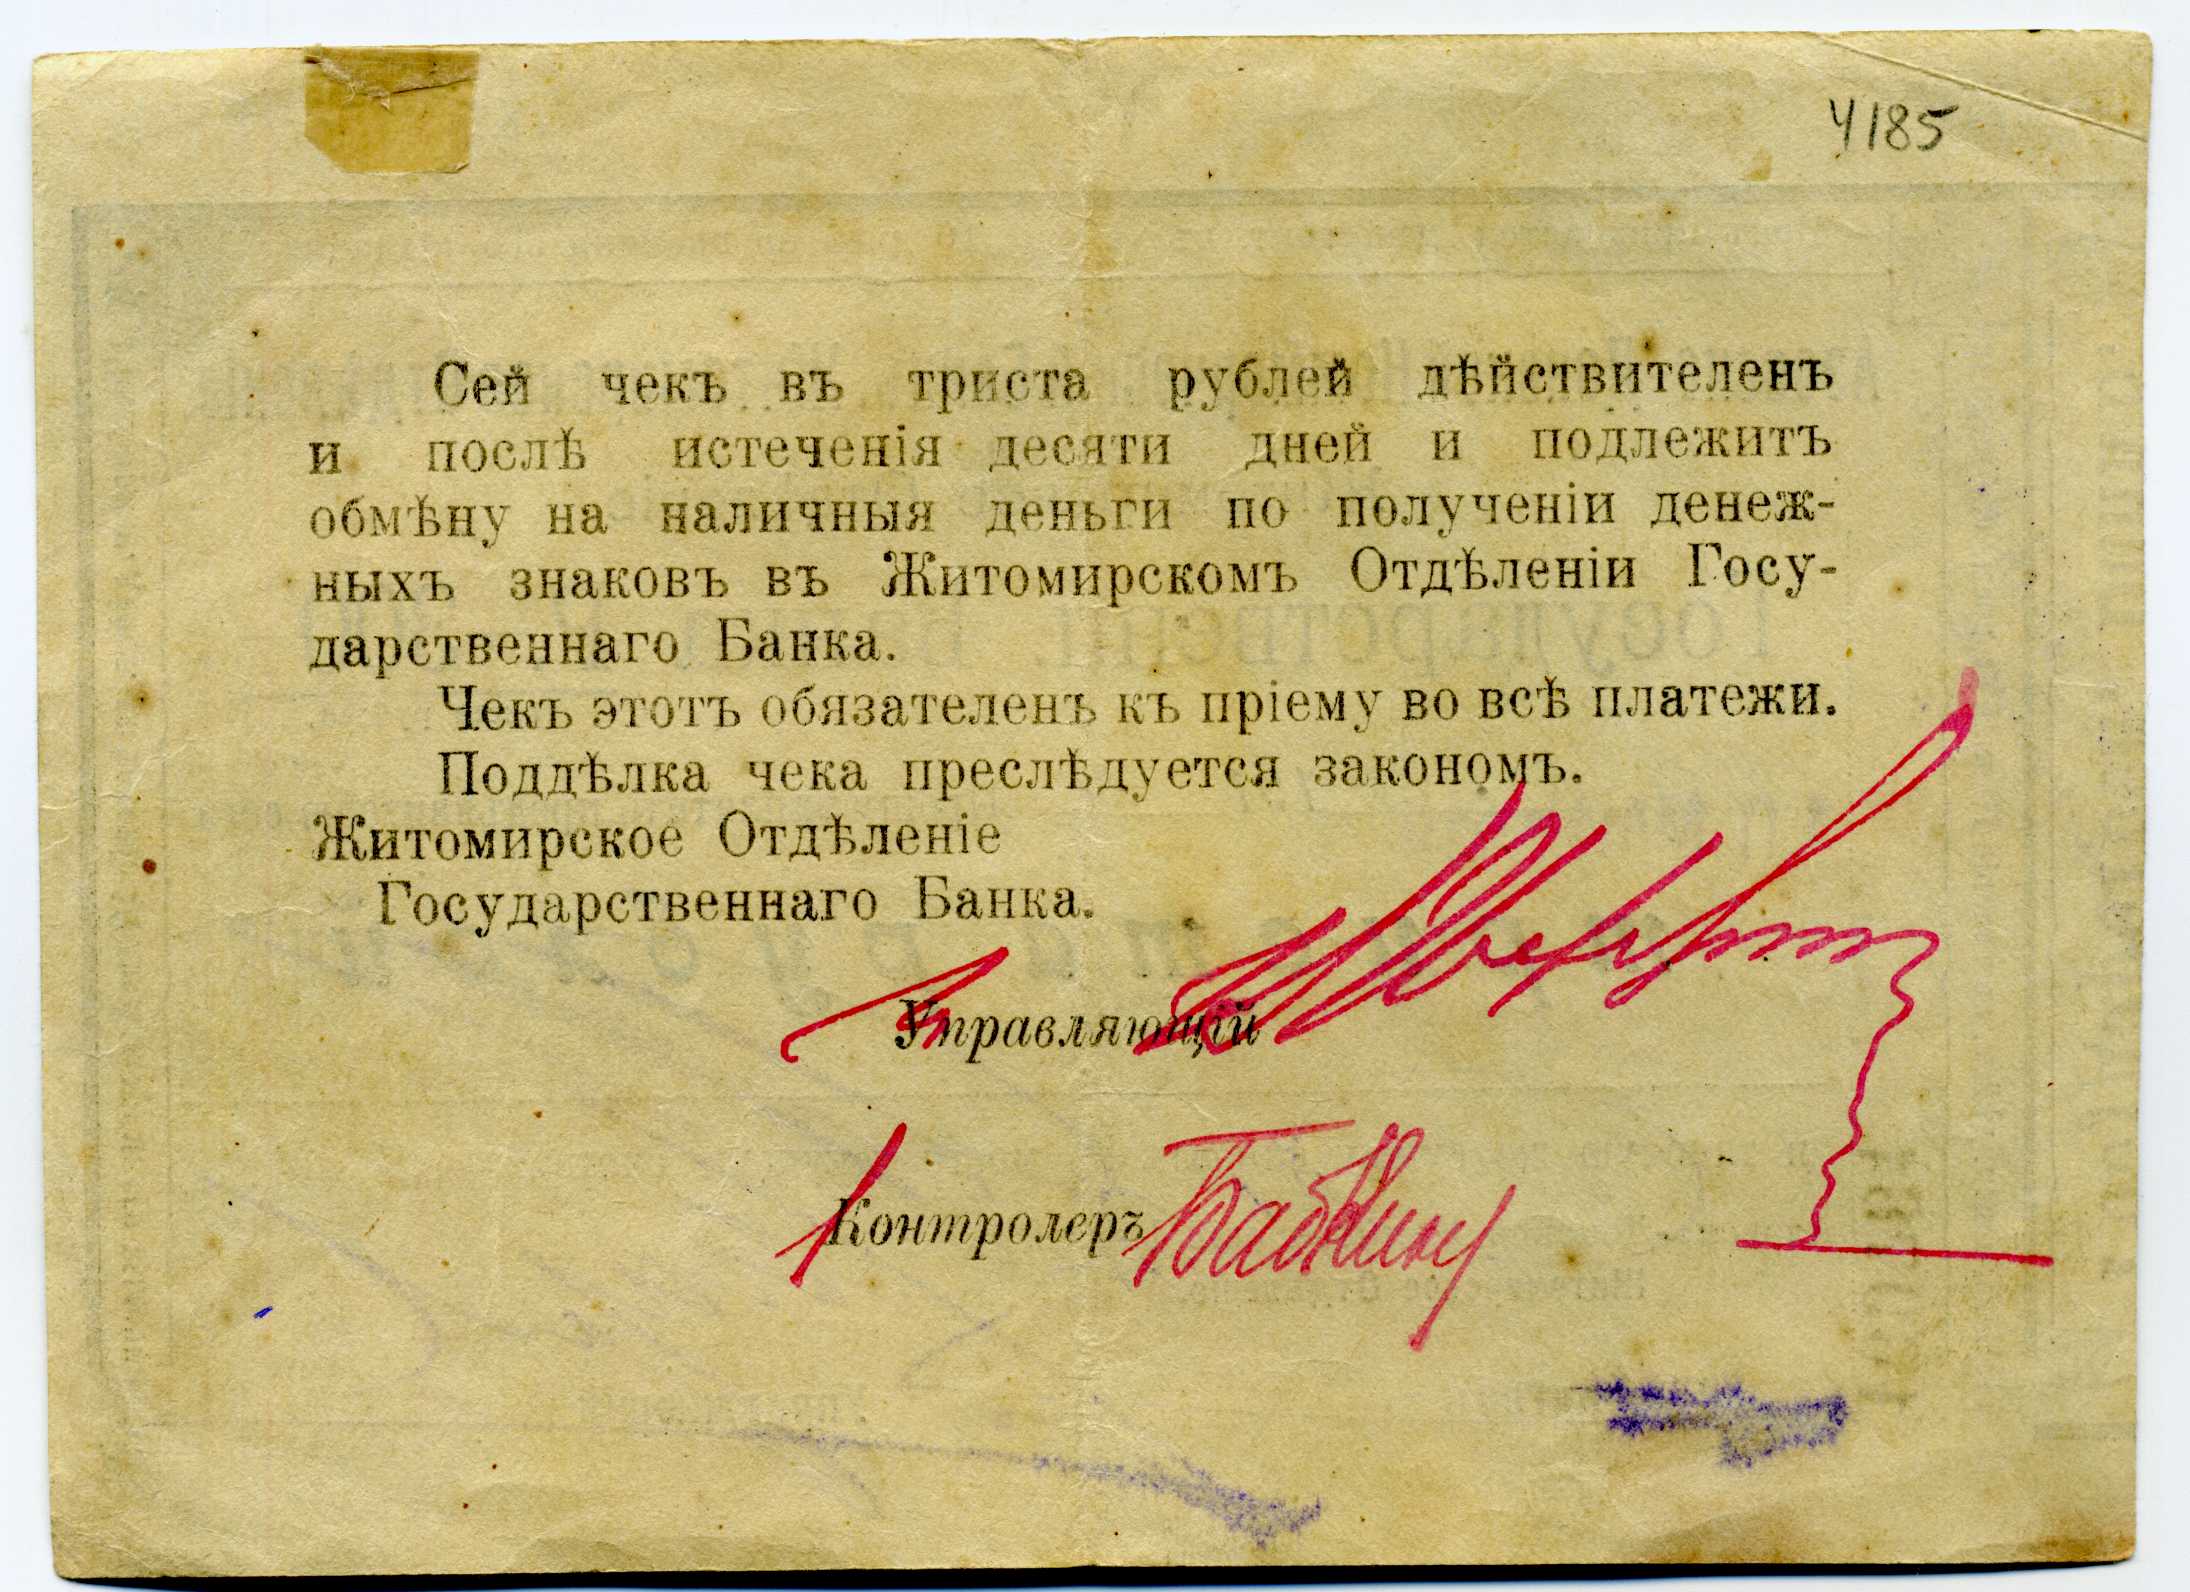 4185
Сей чекъ въ триста рублей дѣйствителенъ
и послѣ истеченія десяти дней и подлежитъ
обмѣну на наличныя деньги по полученіи денеж-
ныхъ знаковъ въ Житомирскомъ Отдѣленіи Госу-
дарственнаго Банка.
Чекъ этотъ обязателенъ къ пріему во всѣ платежи.
Поддѣлка чека преслѣдуется закономъ.
Житомирское Отдѣленіе
Государственнаго Банка.
Управляющій
Контролеръ